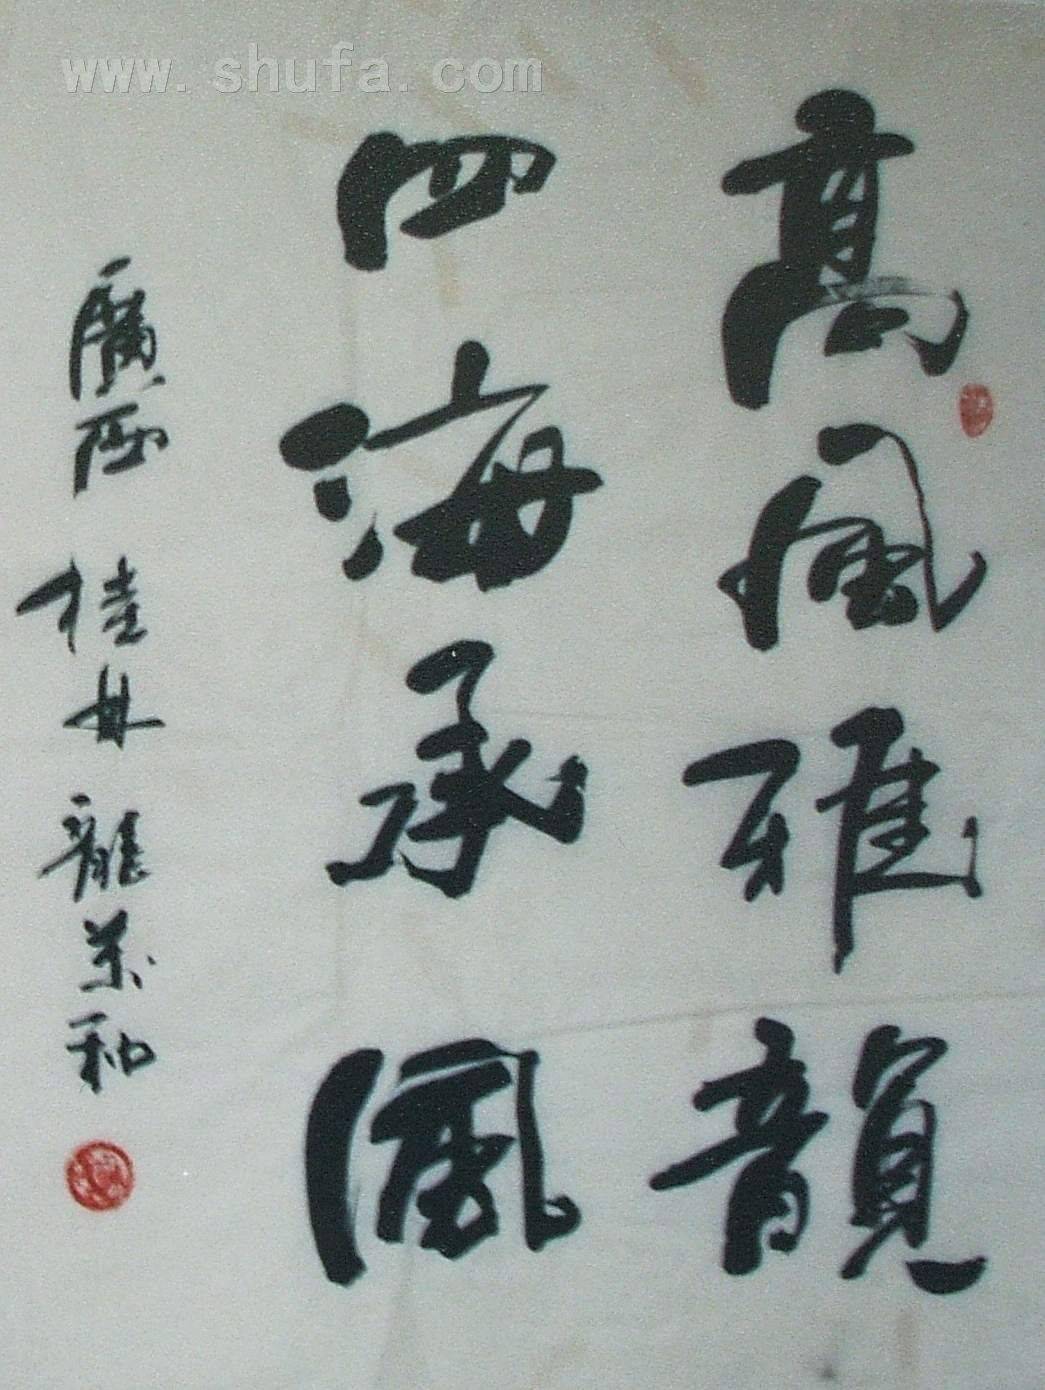 www.shufa.com
高風雅韻
四海承風
廣西 桂林 龍萬和